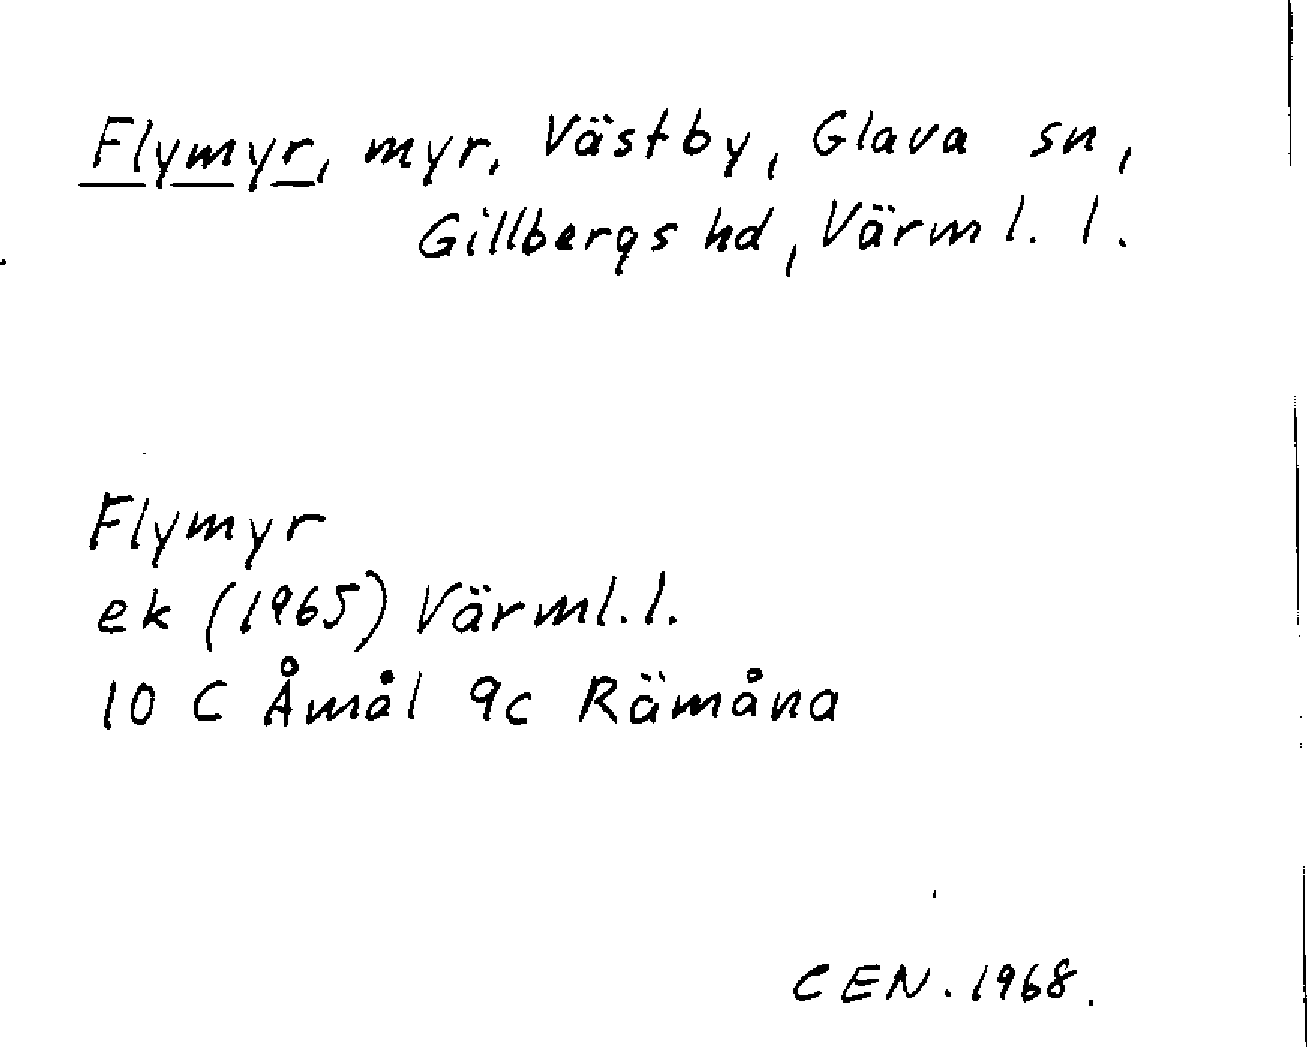 Flymyr, myr, Västby, Glava sn,
Gillbergs hd, Värml. l.
Flymyr
ek (1965) Värml. l.
10 C Åmål 9c Rämåna
CEN. 1968.